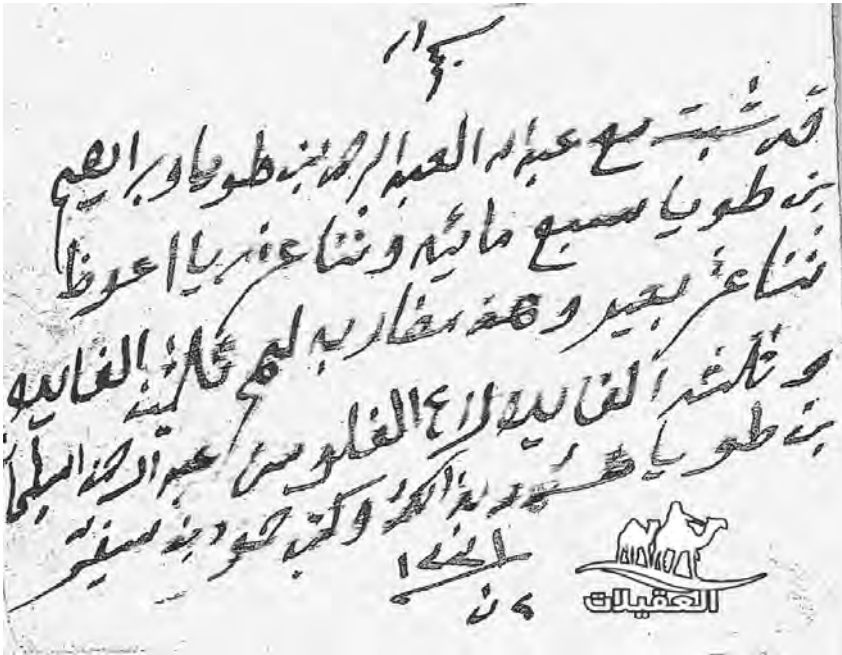 قد ثبت مع عبدالله العبدالرحمن بن طويا وبراهيم
بن طويا سبع مائيه وثناعشر ريال عوظ
ثناعشر بعير وهن مضاربه لهم ثلثين الفايده
وثلث الفايده لراع الفلوس عبدالرحمن
بن طويا شهد به وكتب حمود بن
العقيلات